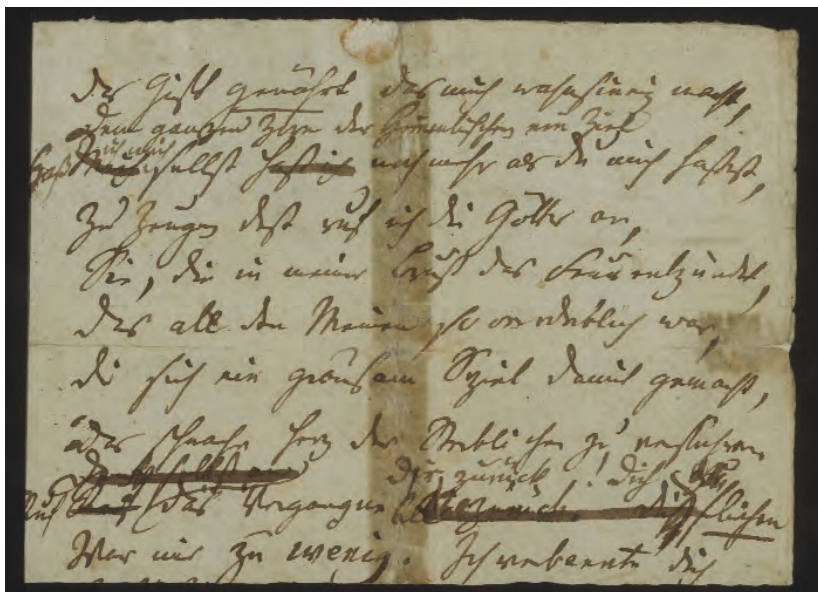 Das Gift genährt das mich wahnsinnig macht,
Dem ganzen Zorn der Himmlischen ein Ziel
Haß ich mich selbst haß ich noch mehr als du mich hassest,
Zu Zeugen deß ruf ich die Götter an,
Sie, die in meiner Brust das Feur entzündet,
Das all den Meinen so verderblich war,
die sich ein grausam Spiel damit gemacht,
Das schwache Herz der Sterblichen zu verführen
dir zurück! Dich
Ruf das Vergangne zurück. fliehen
War mir zu wenig. Ich verbannte dich